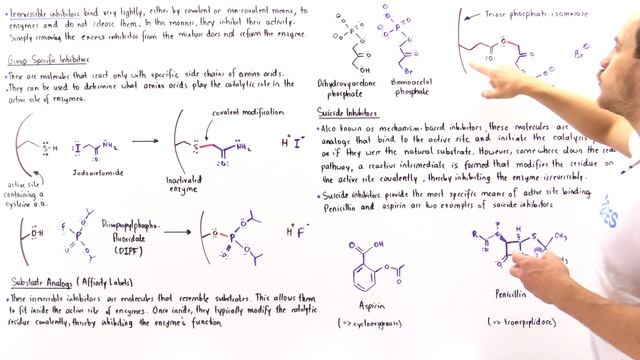 • Irreversible inhibitors bind very tightly, either by covalent or noncovalent means, to
enzymes and do not release them. In this manner, they inhibit their activity.
Simply removing the excess inhibitor from the mixture does not reform the enzyme.
Group Specific Inhibitors
• These are molecules that react only with specific side chains of amino acids.
• They can be used to determine what amino acids play the catalytic role in the
active site of enzymes.
covalent modification
S-H
I
NH₂
O
S
NH₂
O
H⊕ I⊖
active site
containing a
cysteine a.a.
Iodoacetamide
Inactivated
enzyme
OH
F
P
O
Diisopropylphospho-
fluoridate
(DIPF)
O
P
O
H⊕ F⊖
Substrate Analogs (Affinity Labels)
• These irreversible inhibitors are molecules that resemble substrates. This allows them
to fit inside the active site of enzymes. Once inside, they typically modify the catalytic
residue covalently, thereby inhibiting the enzyme's function.
P
O
OH
P
O
Br
Dihydroxyacetone
phosphate
Bromoacetol
phosphate
Triose phosphate isomerase
O
O
Br⊖
Suicide Inhibitors
• Also known as mechanism-based inhibitors, these molecules are
analogs that bind to the active site and initiate the catalysis
as if they were the natural substrate. However, some where down the
pathway, a reactive intermediate is formed that modifies the residue on
the active site covalently, thereby inhibiting the enzyme irreversibly.
• Suicide inhibitors provide the most specific means of active site binding
Penicillin and aspirin are two examples of suicide inhibitors
O
OH
O
O
Aspirin
(=> cyclooxygenase)
R
H
S
CH₃
O
Penicillin
(=> transpeptidase)